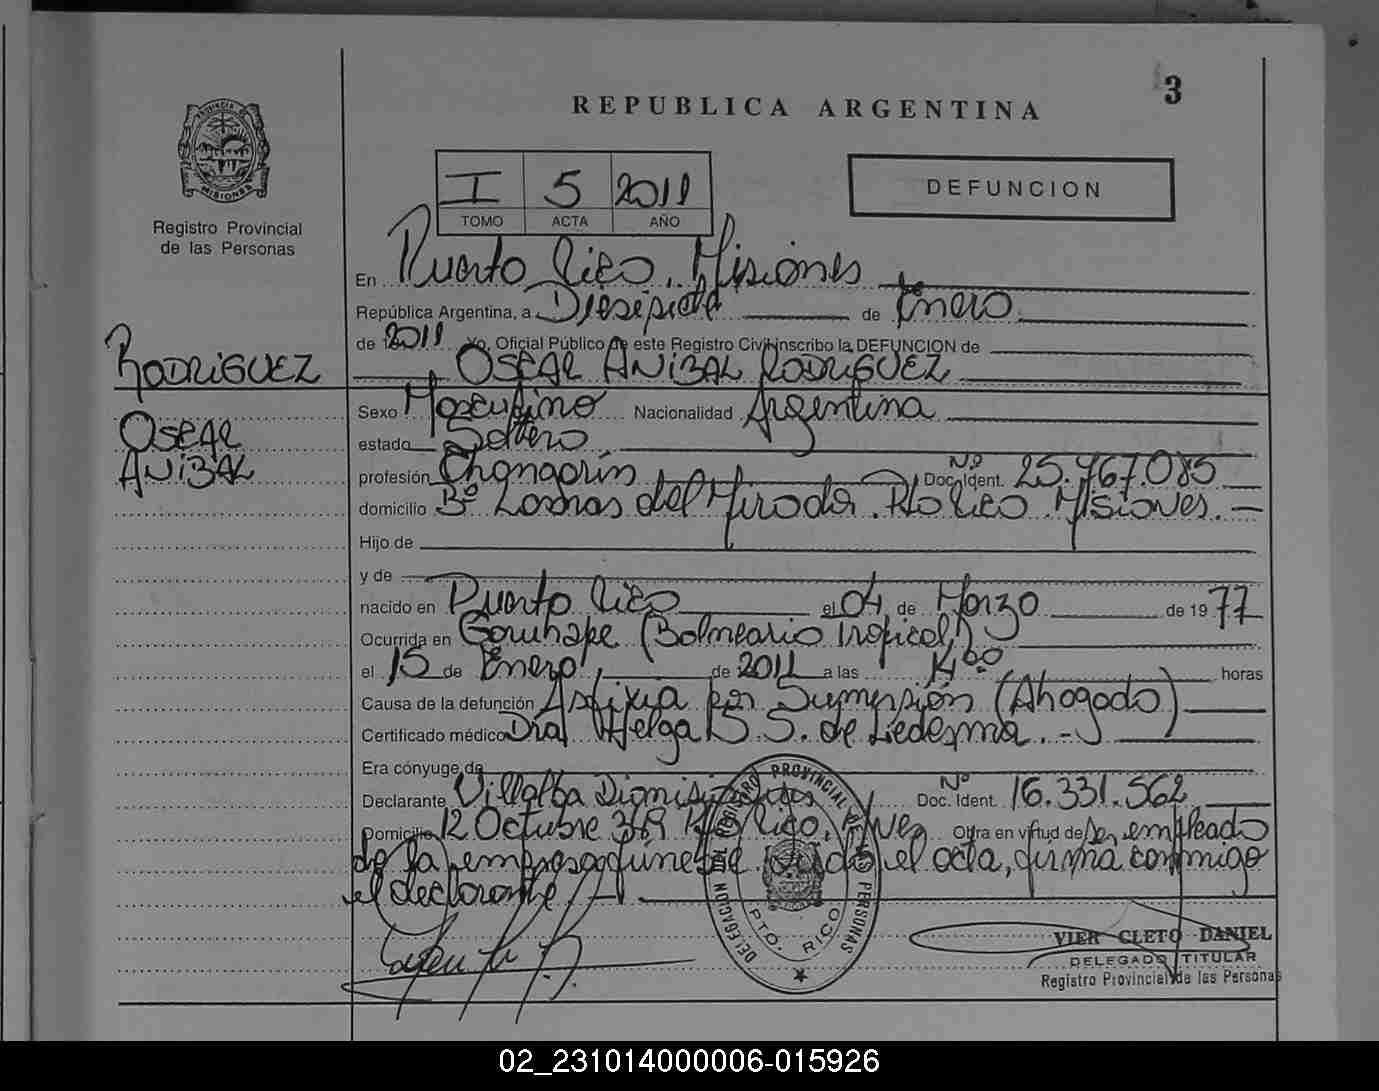 3
REPUBLICA ARGENTINA
PROVINCIA DE MISIONES
Registro Provincial
de las Personas
I 5 2011
TOMO ACTA AÑO
DEFUNCION
En Puerto Rico, Misiones
República Argentina, a Diesisiete de Enero
de 2011 Yo, Oficial Público de este Registro Civil inscribo la DEFUNCION de
RODRIGUEZ
OSCAR ANIBAL RODRIGUEZ
Sexo Masculino Nacionalidad Argentina
OSCAR
estado Soltero
ANIBAL
profesión Changarín Doc. Ident. Nº 25.767.085
domicilio Bº Lomas del Mirador. Pto Rico Misiones.
Hijo de
y de
nacido en Puerto Rico el 04 de Marzo de 1977
Ocurrida en Garuhape (Balneario Tropical)
el 15 de Enero, de 2011 a las 14:00 horas
Causa de la defunción Asfixia por Sumersión (Ahogado)
Certificado médico Dra Helga S. de Ledesma.-
Era cónyuge de
Declarante Villalba Dionisio Doc. Ident. Nº 16.331.562
Domicilio 12 Octubre 369 Pto Rico, Mnes Obra en virtud de Ser empleado
de la empresa fúnebre. Leído el acta, firma conmigo
el declarante.
DELEGACION DEL REGISTRO PROVINCIAL DE LAS PERSONAS
PTO. RICO
VIER CLETO DANIEL
DELEGADO TITULAR
Registro Provincial de las Personas
02_231014000006-015926